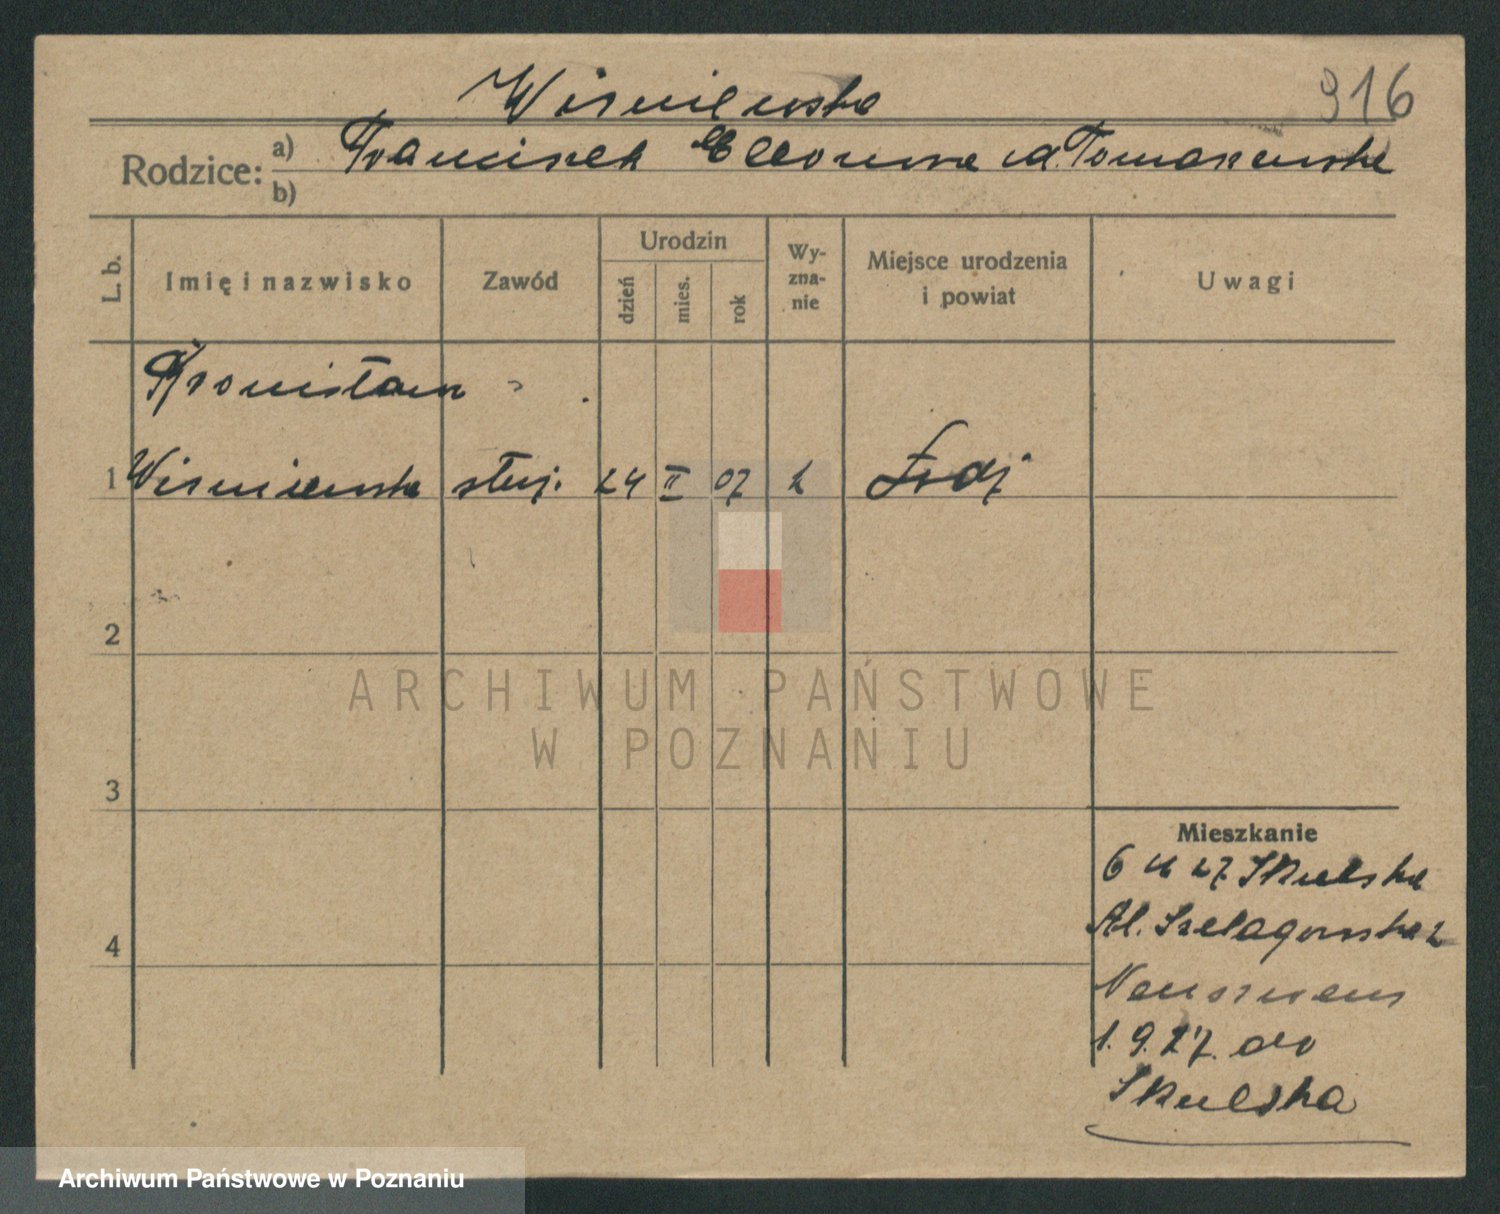 Wiśniewska
916
Rodzice: a) Franciszek Eleonora d. Tomaszewska
b)
L. b. Imię i nazwisko Zawód Urodzin dzień mies. rok Wyznanie Miejsce urodzenia i powiat Uwagi
Bronisława
1 Wiśniewska służ. 24 II 07 Łodź
2
3
4
Mieszkanie
6 27 Skulska
Al. Szelągowska 2
1.9.27. do
Skulska
ARCHIWUM PAŃSTWOWE
W POZNANIU
Archiwum Państwowe w Poznaniu